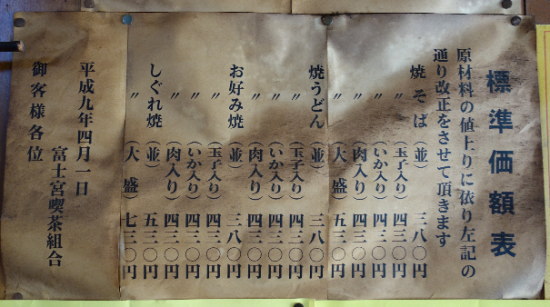 標準価額表
原材料の値上りに依り左記の
通り改正をさせて頂きます
焼そば(並) 三八〇円
〃 (玉子入り) 四三〇円
〃 (いか入り) 四三〇円
〃 (肉入り) 四三〇円
〃 (大盛) 五三〇円
焼うどん(並) 三八〇円
〃 (玉子入り) 四三〇円
〃 (いか入り) 四三〇円
〃 (肉入り) 四三〇円
お好み焼(並) 三八〇円
〃 (玉子入り) 四三〇円
〃 (いか入り) 四三〇円
〃 (肉入り) 四三〇円
しぐれ焼(並) 五三〇円
〃 (大盛) 七三〇円
平成九年四月一日
富士宮喫茶組合
御客様各位